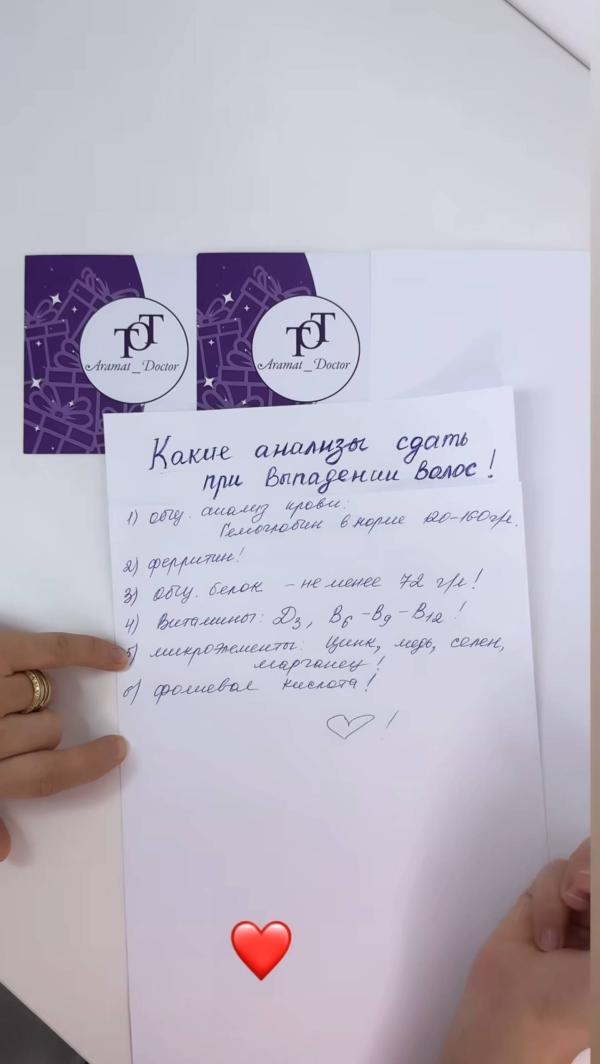 TOT
Aramat_Doctor
TOT
Aramat_Doctor
Какие анализы сдать
при выпадении волос!
1) общ. анализ крови:
Гемоглобин в норме 120-160 г/л.
2) ферритин!
3) общ. белок - не менее 72 г/л!
4) Витамины: D3, B6-B9-B12!
5) микроэлементы: Цинк, медь, селен,
марганец!
6) фолиевая кислота!
!